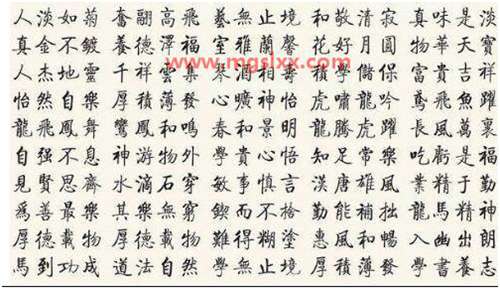 人淡如菊 奮翮高飛 藝無止境 和敬清寂 真味是淡
真金不鍍 養德澤福 室雅蘭馨 花好月圓 物華天寶
人杰地靈 千祥雲集 琴 酒相 積學儲 富貴吉祥
怡然自樂 厚積薄發 心曠神怡 虎嘯龍吟 鳶飛魚躍
龍飛鳳舞 鸞鳳和鳴 春和景明 龍騰虎躍 長風萬里
自强不息 神游物外 學貴心悟 知足常樂 吃虧是福
見賢思齊 水滴石穿 敏事慎言 漢唐雄風 業精于勤
爲善最樂 其樂無窮 鍥而不捨 勤能補拙 龍馬精神
厚德載物 厚德載物 難得糊塗 惠風和暢 入幽出朗
馬到功成 道法自然 學無止境 厚積薄發 學書養志
www.mgslxx.com